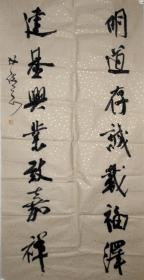 明道存誠載福澤
建基興業啟嘉祥